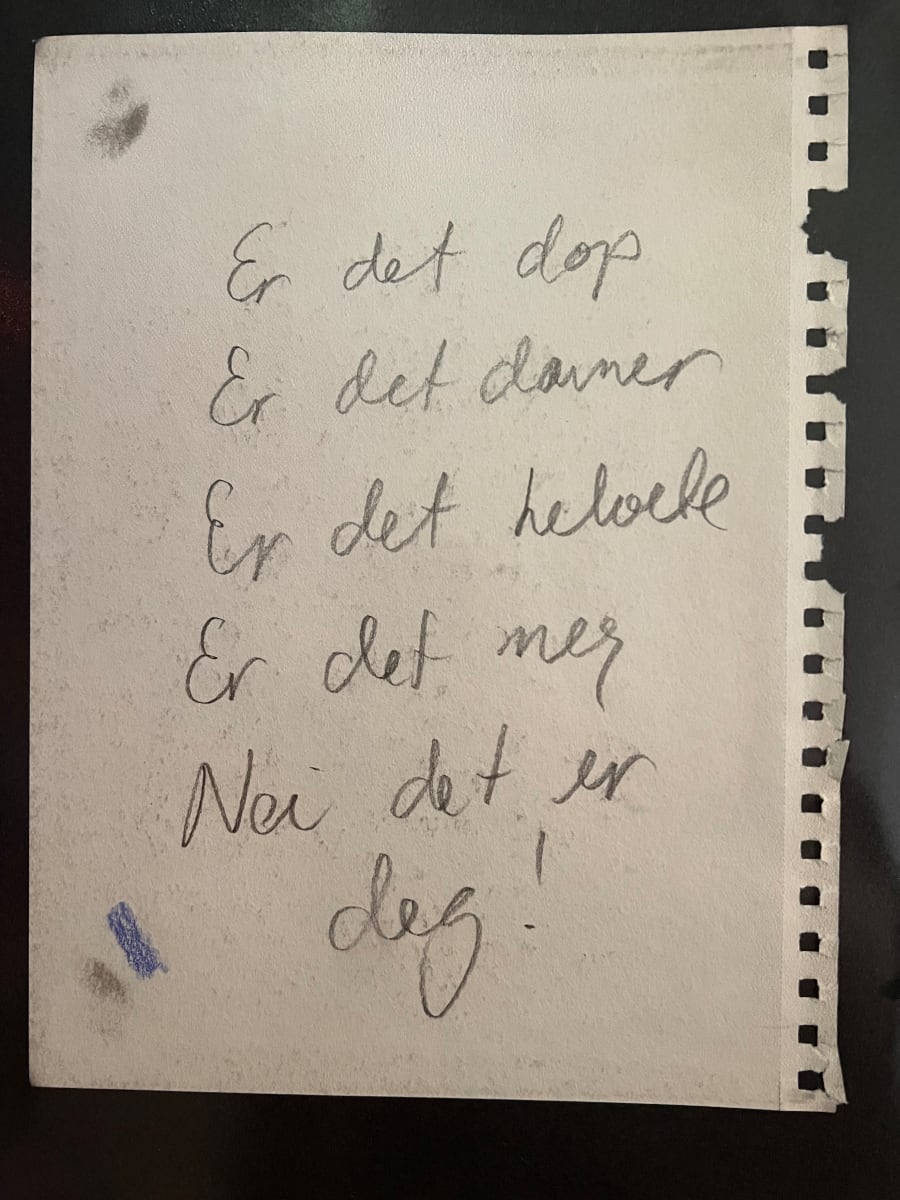 Er det dop
Er det damer
Er det helvete
Er det meg
Nei det er
deg!